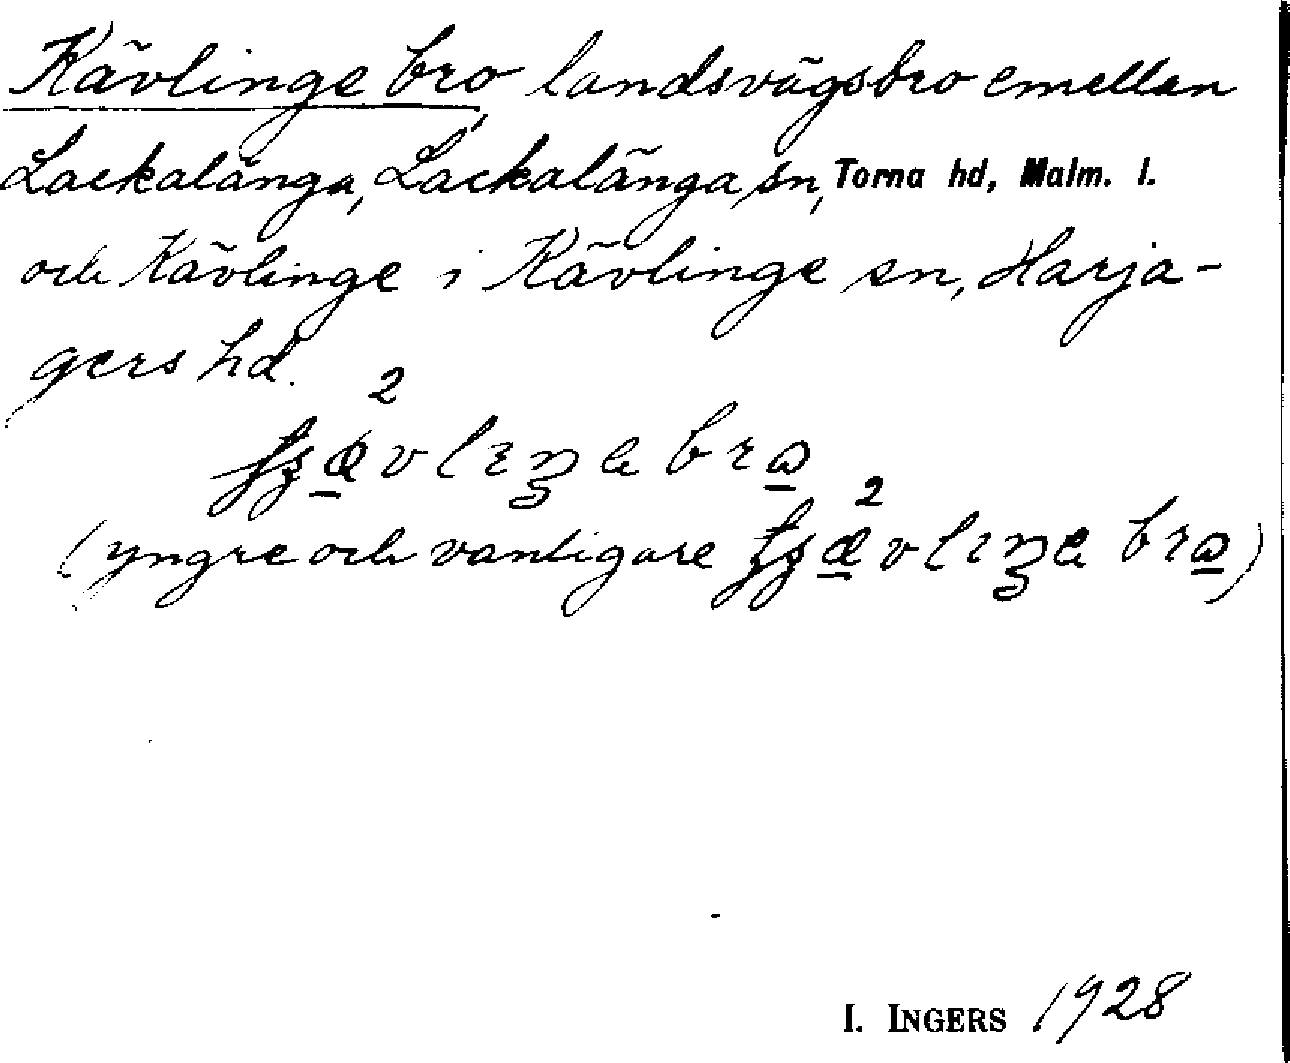 Kävlinge bro, landsvägsbro emellan
Lackalänga, Lackalänga sn, Torna hd, Malm. l.
och Kävlinge i Kävlinge sn, Harja-
gers hd.
(yngre och vanligare
I. INGERS 1928